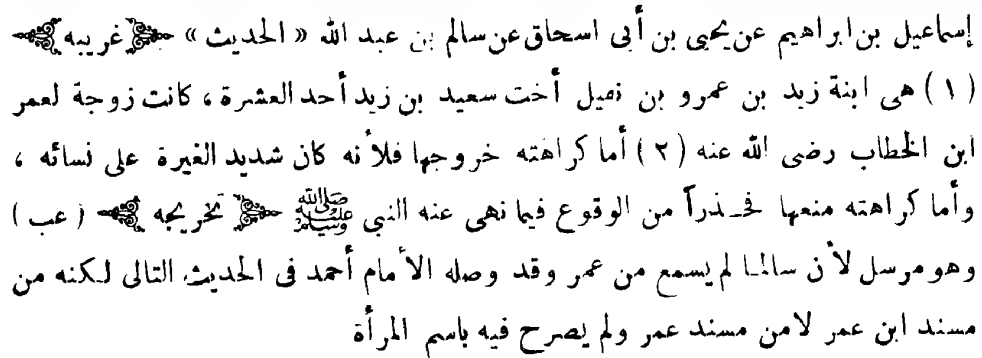 إسماعيل بن ابراهيم عن يحيى بن أبى اسحاق عن سالم بن عبد الله « الحديث » ﴿ غريبه ﴾
( ١ ) هى ابنة زيد بن عمرو بن نفيل أخت سعيد بن زيد أحد العشرة ، كانت زوجة لعمر
ابن الخطاب رضى الله عنه ( ٢ ) أما كراهته خروجها فلأنه كان شديد الغيرة على نسائه ،
وأما كراهته منعها فحذراً من الوقوع فيما نهى عنه النبى ﷺ ﴿ تخريجه ﴾ ( عب )
وهو مرسل لأن سالما لم يسمع من عمر وقد وصله الأمام أحمد فى الحديث التالى لكنه من
مسند ابن عمر لامن مسند عمر ولم يصرح فيه باسم المرأة